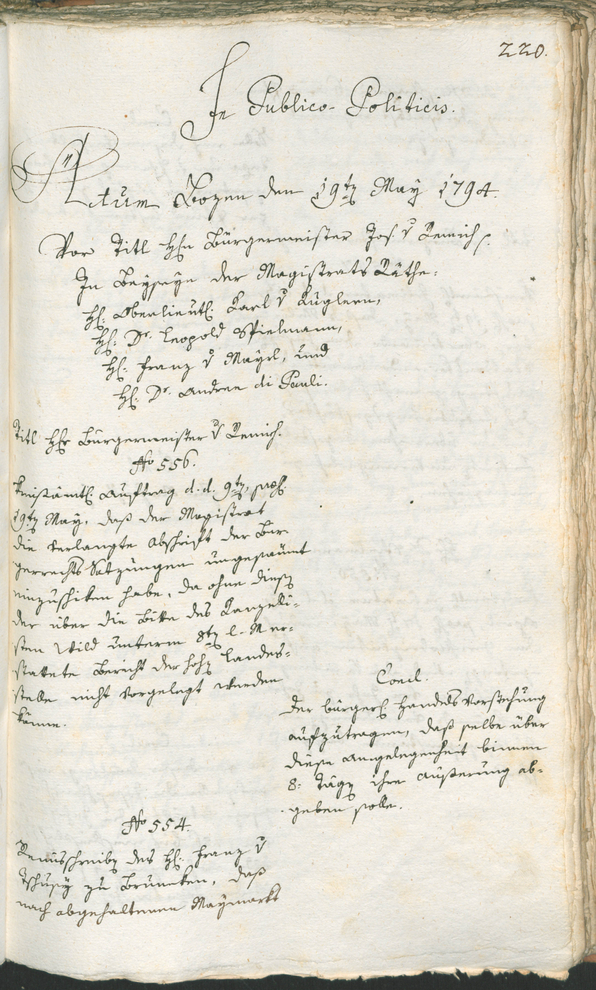 220.
In Publico-Politicis.
Actum Bozen den 19ten May 1794.
Vor Titl Hrn Bürgermeister Jos. v Remich p.
In Beyseyn der Magistrats Räthe:
H. Oberlieut. Karl v Kuglern,
H. Dr. Leopold Spielmann,
H. Franz v Mayrl, und
H. Dr. Andree di Pauli.
Titl Hr Bürgermeister v Remich.
No 556.
Kreisämtl. Auftrag d. d. 9ten, pres.
19ten May, daß der Magistrat
die verlangte Abschrift der Bür-
gerrechts Satzungen ungesäumt
einzuschiken habe, da ohne diesen
der über die Bitte des Kanzelli-
sten Wild unterm 8ten l. M er-
stattete Bericht der hohen Landes-
stelle nicht vorgelegt werden
könne.
Concl.
Der bürgerl. Handels Vorstehung
aufzutragen, daß selbe über
diese Angelegenheit binnen
8: Tägen ihre Äußerung ab-
geben solle.
No 554.
des H. Franz v
Tschusy zu Bruneken, daß
nach abgehaltenen Maymarkt